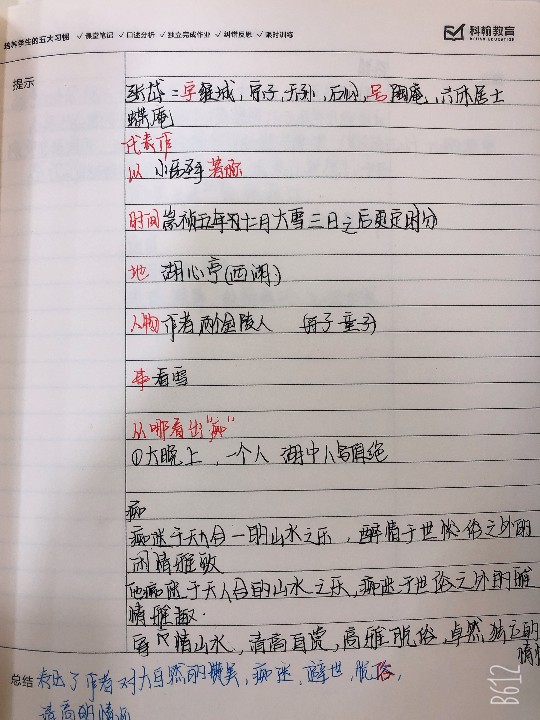 培养学生的五大习惯 ✓课堂笔记 ✓口述分析 ✓独立完成作业 ✓纠错反思 ✓限时训练
科翰教育
提示
张岱：字维城，宗子，天孙，石公，号陶庵，六休居士
蝶庵
代表作
以 小品文 著称
时间 崇祯五年 十二月大雪三日之后更定时分
地 湖心亭(西湖)
人物 作者 两个金陵人 (舟子 童子)
事 看雪
从哪看出“痴”
①大晚上，一个人 湖中人鸟声俱绝
痴
痴迷于天人合一的山水之乐，醉情于世俗之外的
闲情雅致
他痴迷于天人合的山水之乐，痴迷于世俗之外的雅
情雅趣.
寄情山水，清高自赏，高雅脱俗，卓然独立的
情
总结 表出了作者对大自然的赞美，痴迷，醉世，脱俗，
清高的情
B612